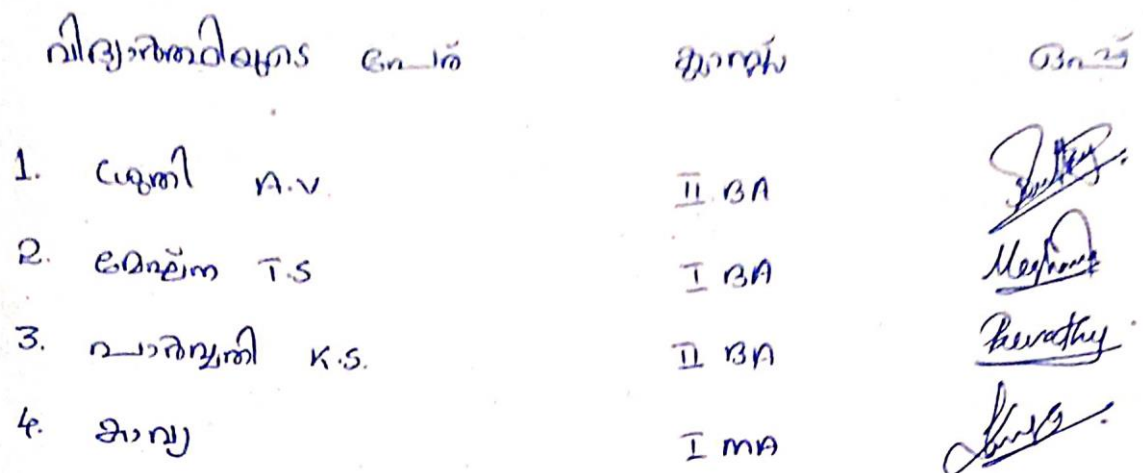 വിദ്യാർത്ഥിയുടെ പേര് ക്ലാസ്സ് ഒപ്പ്
1. ശ്രുതി A.V. II BA
2. മേഘ്ന T.S I BA Meghna
3. പാർവ്വതി K.S. II BA Parvathy
4. കാവ്യ I MA